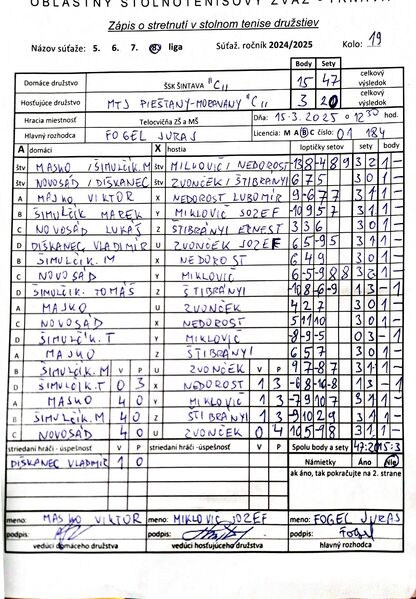 OBLASTNÝ STOLNOTENISOVÝ ZVÄZ TRNAVA
Zápis o stretnutí v stolnom tenise družstiev
Názov súťaže: 5. 6. 7. 8. liga Súťaž. ročník 2024/2025 Kolo: 19
Body Sety
Domáce družstvo ŠSK ŠINTAVA "C" 15 47 celkový výsledok
Hosťujúce družstvo MTJ PIEŠŤANY-MORAVANY "C" 3 20 celkový výsledok
Hracia miestnosť Telocvičňa ZŠ a MŠ Dňa: 15.3.2025 o 12 30 hod.
Hlavný rozhodca FOGEL JURAJ Licencia: M A B C číslo: 01 184
A domáci X hostia loptičky setov sety body
štv MASKO / ŠIMULČÍK.M štv MIKLOVIČ / NEDOROST 3 2 1 -
štv NOVOSÁD / DÍSKANEC štv ZVONČEK / ŠTIBRÁNYI 6 7 5 3 0 1 -
A MASKO VIKTOR X NEDOROST ĽUBOMÍR 9 -6 7 7 3 1 1 -
B ŠIMULČÍK MAREK Y MIKLOVIČ JOZEF -10 9 5 7 3 1 1 -
C NOVOSÁD LUKÁŠ Z ŠTIBRÁNYI ERNEST 3 3 6 3 0 1 -
D DÍSKANEC VLADIMÍR U ZVONČEK JOZEF 6 5 -9 5 3 1 1 -
B ŠIMULČÍK.M X NEDOROST 6 4 9 3 0 1 -
C NOVOSÁD Y MIKLOVIČ 6 -5 -9 8 8 3 2 1 -
D ŠIMULČÍK TOMÁŠ Z ŠTIBRÁNYI -10 8 -6 -9 1 3 - 1
A MASKO U ZVONČEK 4 2 7 3 0 1 -
C NOVOSÁD X NEDOROST 5 11 10 3 0 1 -
D ŠIMULČÍK.T Y MIKLOVIČ -8 -9 -5 0 3 - 1
A MASKO Z ŠTIBRÁNYI 6 5 7 3 0 1 -
B ŠIMULČÍK.M V P U ZVONČEK V P 9 7 -8 7 3 1 1 -
D ŠIMULČÍK.T 0 3 X NEDOROST 1 3 -6 8 -10 -8 1 3 - 1
A MASKO 4 0 Y MIKLOVIČ 1 3 -7 9 10 7 3 1 1 -
B ŠIMULČÍK.M 4 0 Z ŠTIBRÁNYI 1 3 -9 10 2 9 3 1 1 -
C NOVOSÁD 4 0 U ZVONČEK 0 4 10 5 -9 8 3 1 1 -
striedaní hráči - úspešnosť V P striedaní hráči - úspešnosť V P Spolu body a sety 47:20 15:3
DÍSKANEC VLADIMÍR 1 0 Námietky Áno Nie
ak áno, tak pokračujte na 2. strane
meno: MASKO VIKTOR meno: MIKLOVIČ JOZEF meno: FOGEL JURAJ
podpis: podpis: podpis: Fogel
vedúci domáceho družstva vedúci hosťujúceho družstva hlavný rozhodca